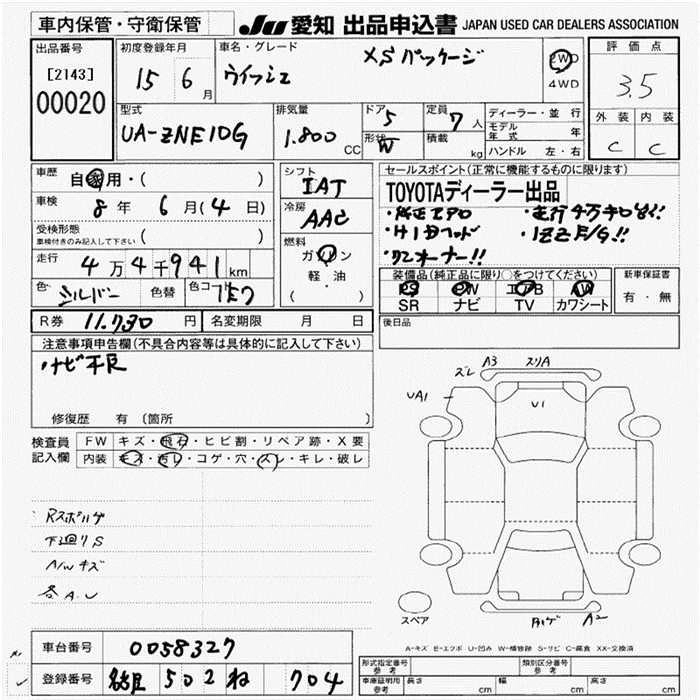 車内保管・守衛保管
JU 愛知 出品申込書 JAPAN USED CAR DEALERS ASSOCIATION
出品番号
[2143]
00020
初度登録年月
15 6月
車名・グレード
ウイッシュ XSパッケージ
2WD
4WD
評価点
3.5
外装 内装
C C
型式
UA-ZNE10G
排気量
1.800 CC
ドア 5
形状 W
定員 7人
積載 kg
ディーラー・並行
モデル年式 年
ハンドル 左・右
車歴 自家用・( )
車検 8年 6月(4日)
受検形態
車検付きのみ記入して下さい ( )
走行 4万4千941km
色 シルバー 色替 色コード 1E7
シフト
IAT
冷房
AAC
燃料
ガソリン
軽・油
( )
セールスポイント(正常に機能するものに限ります)
TOYOTAディーラー出品
・純正エアロ ・走行4万キロ台!!
・HIDヘッド ・1ZZ E/G!!
・ワンオーナー!!
装備品(純正品に限り○をつけてください)
PS PW エアB AW
SR ナビ TV カワシート
新車保証書
有・無
R券 11.730円 名変期限 月 日
後日品
注意事項申告欄(不具合内容等は具体的に記入して下さい)
・ナビ不良
修復歴 有 (箇所
検査員記入欄
FW キズ・飛石・ヒビ割・リペア跡・X要
内装 キズ・汚レ・コゲ・穴・スレ・キレ・破レ
下廻りS
A/Wキズ
各A.U
ズレ A3 スリA
UA1
U1
スペア
A2
A-キズ E-エクボ U-凹み W-補修跡 S-サビ C-腐食 XX-交換済
車台番号 0058327
登録番号 502 ね 704
形式指定番号
参考
類別区分番号
参考
車庫証明用
参考
長さ cm 幅 cm 高さ cm